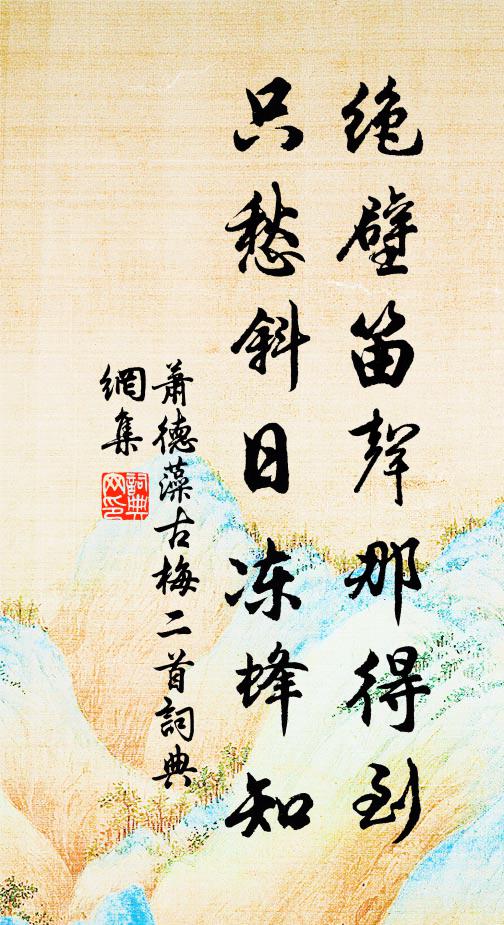 绝壁笛聲那得到
只愁斜日冻蜂知
萧德藻古梅二首詞典
網集
詞典
网印